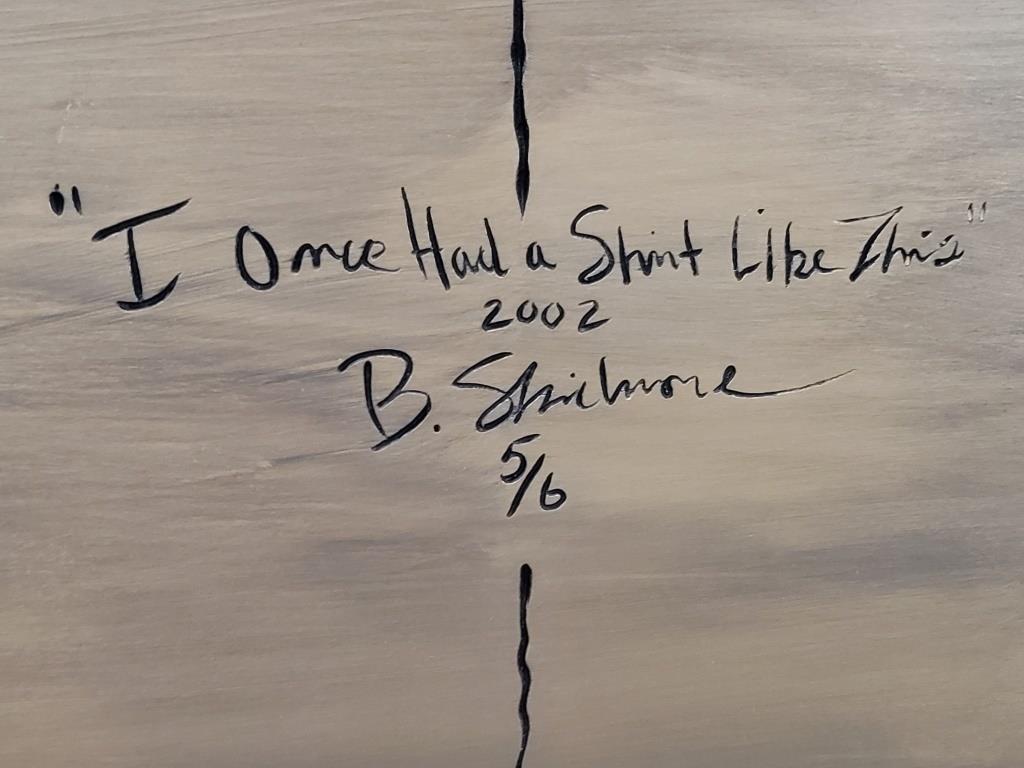 "I Once Had a Shirt Like This"
2002
B. Skidmore
5/6